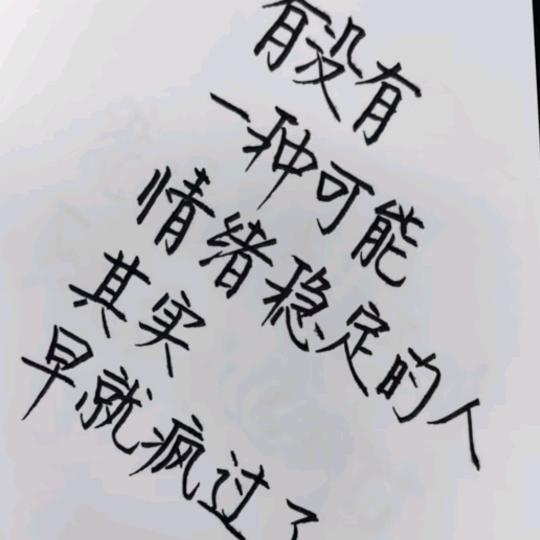 有没有
一种可能
情绪稳定的人
其实
早就疯过了